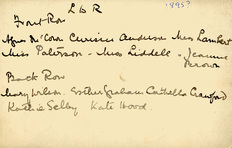 1895?
Front Row L & R
Agnes McCorn Chrissie Anderson Miss Lambert
Miss Paterson - Miss Liddell - Jeannie
Brown
Back Row
Mary Wilson. Esther Graham Crawford
Katie Selby Kate Hood.